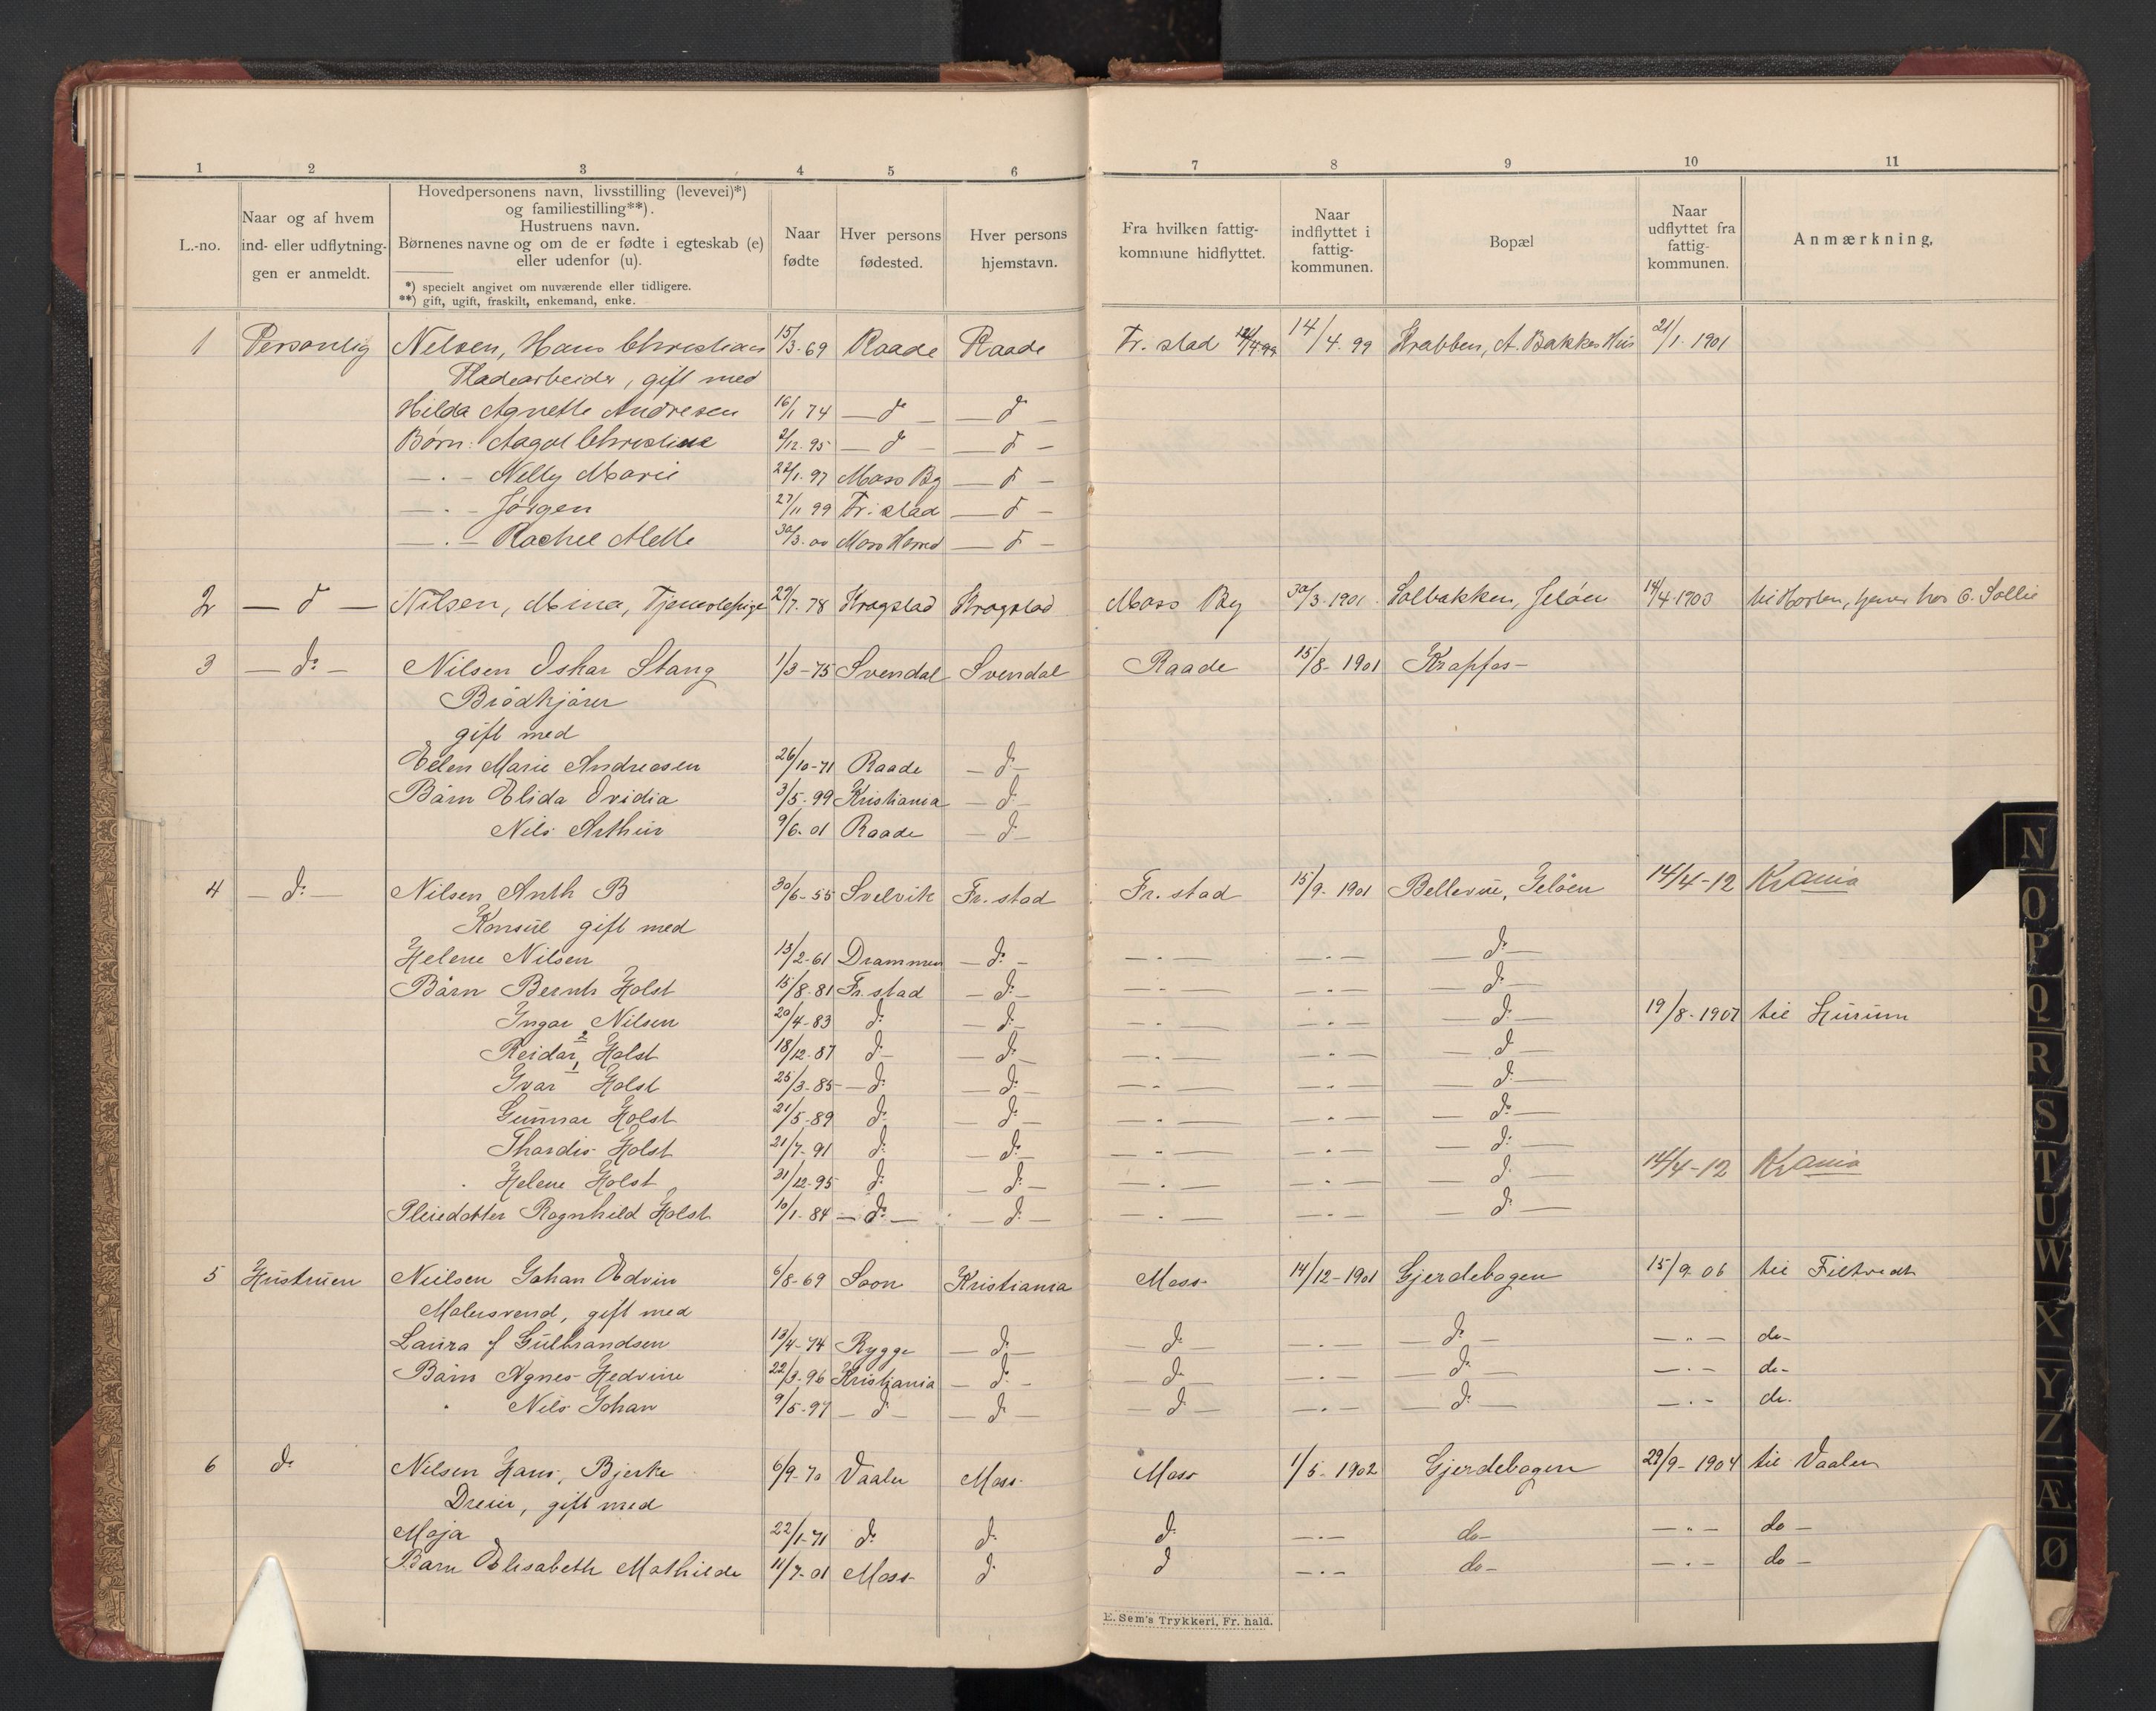 1 2 3 4 5 6 7 8 9 10 11
L.-no. Naar og af hvem ind- eller udflytningen er anmeldt.
Hovedpersonens navn, livsstilling (levevei)*)
og familiestilling**).
Hustruens navn.
Børnenes navne og om de er fødte i egteskab (e)
eller udenfor (u).
*) specielt angivet om nuværende eller tidligere.
**) gift, ugift, fraskilt, enkemand, enke.
Naar fødte
Hver persons fødested.
Hver persons hjemstavn.
Fra hvilken fattigkommune hidflyttet.
Naar indflyttet i fattigkommunen.
Bopæl
Naar udflyttet fra fattigkommunen.
Anmærkning.
1 Personlig Nilsen, Hans Christian 15/3.69 Raade Raade Fr. stad 14/4.99 Krabben, A. Bakkes Hus 21/1.1901
Pladearbeider, gift med
Hilda Agnette Andresen 16/1 74 — d — — d
Børn: Aagot Christine 2/12.95 — d — — d —
— . — Nelly Marie 22/1.97 Moss By — d —
— . — Jørgen 27/11 99 Fr. stad — d —
— . — Rachel Alette 30/3.00 Moss Herred — d —
2 — d — Nilsen, Mina, Tjenestepige 29/7.78 Kragstad Kragstad Moss By 30/3.1901 Solbakken, Jeløen 14/4.1903 til Horten, tjener hos G. Sollie
3 — d: — Nilsen Oskar Stang 1/3-75 Svendal Svendal Raade 15/8-1901 Krapfos
Brødkjører
gift med
Ellen Marie Andreasen 26/10-71 Raade — d: —
Børn Elida Ovidia 3/5.99 Kristiania — d: —
Nils Arthur 9/6.01 Raade — d: —
4 — d: — Nilsen Anth B 30/6-55 Svelvik Fr. stad Fr. stad 15/9-1901 Bellevue, Jeløen 14/4-12 Krania
Konsul gift med
Helene Nilsen 13/2-61 Drammen — d: — — . — — . — — d: —
Børn Bernth Holst 15/8-81 Fr. stad — d: — — . — — . — — d: —
Ingar Nilsen 20/4-83 d: — d: — — . — — . — — d: — 19/8-1907 til Hurum
Reidar 2 Holst 18/12-87 d: — d: — — . — — . — — d —
Ivar 1 Holst 25/3-85 — d: — d: — — . — — . — — d: —
Gunnar Holst 21/5-89 d: — d: — — . — — . — — d: —
Thordis Holst 21/7-91 d: — d: — — . — — . — — d: —
Helene Holst 31/12-95 d: — d: — — . — — . — — d: — 14/4-12 Krania
Pleiedatter Ragnhild Holst 10/1-84 — d: — — d: — — . — — . — — d: —
5 Hustruen Nielsen Johan Edvin 6/8-69 Soon Kristiania Moss 14/12-1901 Gjerdebogen 15/9 06 til Filtvedt
Malersvend, gift med
Laura f Gulbrandsen 13/4-74 Rygge — d: — — d: — — . — — d: — — " — do-
Børn Agnes Hedvine 22/3-96 Kristiania — d: — — d: — — . — — d: — — . — do-
" Nils Johan 9/5-97 — d — — d: — — d: — — . — — d: — — . — do.
6 d: Nilsen Hans, Bjerke 6/9-70 Vaaler Moss Moss 1/5-1902 Gjerdebogen 29/9-1904 til Vaaler
Dreier, gift med
Maja 22/1-71 d: d: d: — . — do- — " — do-
Barn Elisabeth Mathilde 11/7-01 Moss d: d — . — do- — . — do-
E. Sem's Trykkeri, Fr. hald.
N
O
P
Q
R
S
T
U
W
X
Y
Z
Æ
Ø